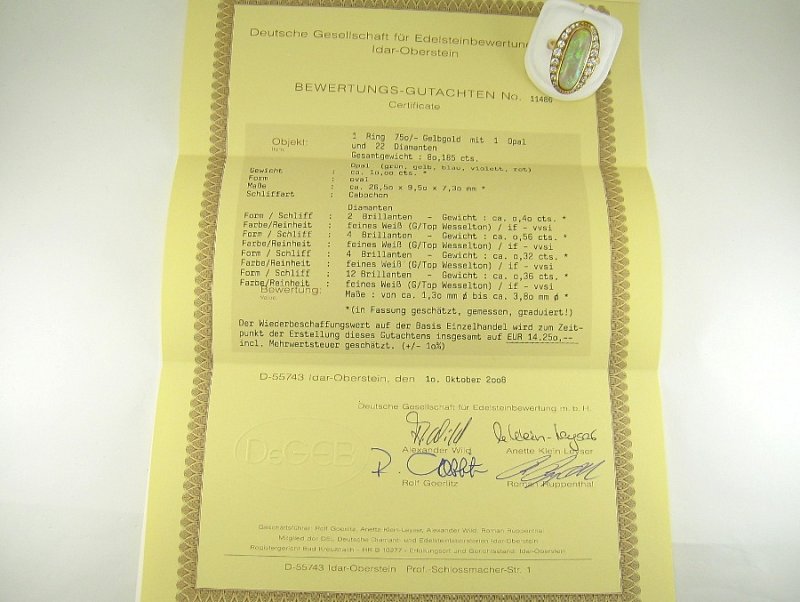 Deutsche Gesellschaft für Edelsteinbewertung
Idar-Oberstein
BEWERTUNGS-GUTACHTEN No. 11486
Certificate
Objekt: 1 Ring 750/- Gelbgold mit 1 Opal
Item und 22 Diamanten
Gesamtgewicht : 80,185 cts.
Opal (grün, gelb, blau, violett, rot)
Gewicht : ca. 10,00 cts. *
Form : oval
Maße : ca. 26,50 x 9,50 x 7,30 mm *
Schliffart : Cabochon
Diamanten
Form / Schliff : 2 Brillanten - Gewicht : ca. 0,40 cts. *
Farbe/Reinheit : feines Weiß (G/Top Wesselton) / if - vvsi
Form / Schliff : 4 Brillanten - Gewicht : ca. 0,56 cts. *
Farbe/Reinheit : feines Weiß (G/Top Wesselton) / if - vvsi
Form / Schliff : 4 Brillanten - Gewicht : ca. 0,32 cts. *
Farbe/Reinheit : feines Weiß (G/Top Wesselton) / if - vvsi
Form / Schliff : 12 Brillanten - Gewicht : ca. 0,36 cts. *
Farbe/Reinheit : feines Weiß (G/Top Wesselton) / if - vvsi
Bewertung: Maße : von ca. 1,30 mm ø bis ca. 3,80 mm ø *
Value
*(in Fassung geschätzt, gemessen, graduiert!)
Der Wiederbeschaffungswert auf der Basis Einzelhandel wird zum Zeit-
punkt der Erstellung dieses Gutachtens insgesamt auf EUR 14.250,--
incl. Mehrwertsteuer geschätzt. (+/- 10%)
D-55743 Idar-Oberstein, den 10. Oktober 2006
Deutsche Gesellschaft für Edelsteinbewertung m.b.H.
DeGEB
Alexander Wild Anette Klein-Leyser
Rolf Goerlitz Roman Huppenthal
Geschäftsführer: Rolf Goerlitz, Anette Klein-Leyser, Alexander Wild, Roman Huppenthal
Mitglied der DEI, Deutsche Diamant- und Edelsteinlaboratorien Idar-Oberstein
Registergericht Bad Kreuznach - HR B 10277 - Erfüllungsort und Gerichtsstand: Idar-Oberstein
D-55743 Idar-Oberstein Prof.-Schlossmacher-Str. 1